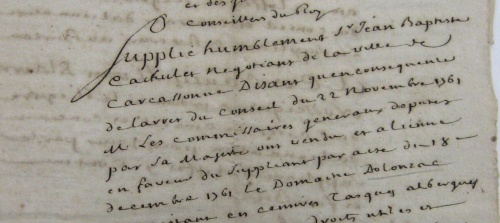 et des
Conseillers du Roy
Supplie humblement Sr Jean Baptiste
Cachulet negotiant de la ville de
Carcassonne Disant qu'en consequence
de larret du Conseil du 22 Novembre 1761
M Les commissaires generaux deputez
par Sa Majesté ont vendu et aliené
en faveur du Suppliant par acte du 18e
decembre 1761 le Domaine Dolonzac
en censives Tasques alberques
droits utiles et